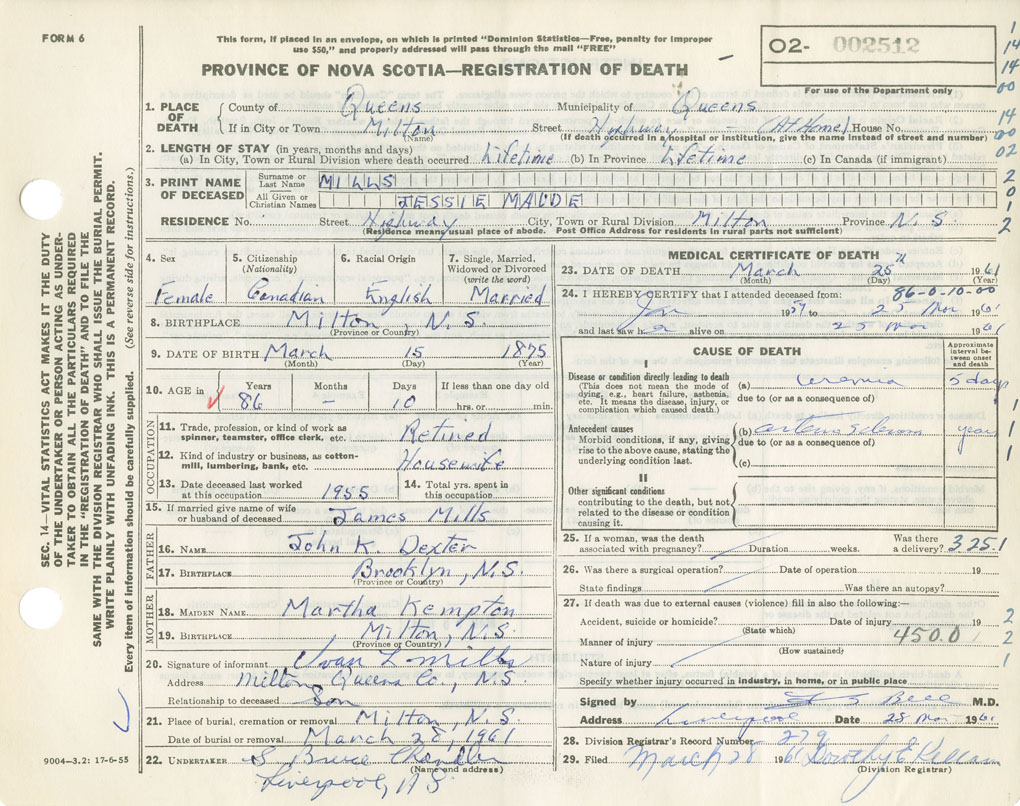 FORM 6
This form, if placed in an envelope, on which is printed "Dominion Statistics—Free, penalty for improper
use $50," and properly addressed will pass through the mail "FREE"
PROVINCE OF NOVA SCOTIA—REGISTRATION OF DEATH
O2- 002512
For use of the Department only
1
14
14
00
14
00
02
2
0
1
2
1. PLACE OF DEATH County of Queens Municipality of Queens
If in City or Town Milton Street Highway - (At Home) House No.
(Name) (If death occurred in a hospital or institution, give the name instead of street and number)
2. LENGTH OF STAY (in years, months and days)
(a) In City, Town or Rural Division where death occurred Lifetime (b) In Province Lifetime (c) In Canada (if immigrant)
3. PRINT NAME OF DECEASED Surname or Last Name MILLS
All Given or Christian Names JESSIE MAUDE
RESIDENCE No. Street Highway City, Town or Rural Division Milton Province N.S.
(Residence means usual place of abode. Post Office Address for residents in rural parts not sufficient)
4. Sex 5. Citizenship (Nationality) 6. Racial Origin 7. Single, Married, Widowed or Divorced (write the word)
Female Canadian English Married
8. BIRTHPLACE Milton, N.S.
(Province or Country)
9. DATE OF BIRTH March 15 1875
(Month) (Day) (Year)
10. AGE in Years Months Days If less than one day old
86 - 10 hrs. or min.
OCCUPATION
11. Trade, profession, or kind of work as spinner, teamster, office clerk, etc. Retired
12. Kind of industry or business, as cotton-mill, lumbering, bank, etc. Housewife
13. Date deceased last worked at this occupation 1955 14. Total yrs. spent in this occupation
15. If married give name of wife or husband of deceased James Mills
FATHER
16. NAME John K. Dexter
17. BIRTHPLACE Brooklyn, N.S.
(Province or Country)
MOTHER
18. MAIDEN NAME Martha Kempton
19. BIRTHPLACE Milton, N.S.
(Province or Country)
20. Signature of informant Ivan L Mills
Address Milton Queens Co., N.S.
Relationship to deceased Son
21. Place of burial, cremation or removal Milton, N.S.
Date of burial or removal March 28, 1961
22. UNDERTAKER S. Bruce Chandler
(Name and address)
Liverpool, N S
MEDICAL CERTIFICATE OF DEATH
23. DATE OF DEATH March 25th 1961
(Month) (Day) (Year)
24. I HEREBY CERTIFY that I attended deceased from: 86-0-10-00
Jan 1959 to 25 Mar 1961
and last saw h er alive on 25 Mar 1961
CAUSE OF DEATH
Approximate interval between onset and death
I
Disease or condition directly leading to death
(This does not mean the mode of dying, e.g., heart failure, asthenia, etc. It means the disease, injury, or complication which caused death.)
(a) Uremia 5 days
due to (or as a consequence of)
Antecedent causes
Morbid conditions, if any, giving rise to the above cause, stating the underlying condition last.
(b) years
due to (or as a consequence of)
(c)
1
1
1
II
Other significant conditions
contributing to the death, but not related to the disease or condition causing it.
25. If a woman, was the death associated with pregnancy? Duration weeks. Was there a delivery? 3251
26. Was there a surgical operation? Date of operation 19
State findings Was there an autopsy?
27. If death was due to external causes (violence) fill in also the following:—
Accident, suicide or homicide? Date of injury 19 2
(State which)
Manner of injury 450.0 2
(How sustained)
Nature of injury 1
Specify whether injury occurred in industry, in home, or in public place
Signed by M.D.
Address Liverpool Date 25 Mar 1961
28. Division Registrar's Record Number 279
29. Filed March 28 1961 Dorothy E
(Division Registrar)
SEC. 14—VITAL STATISTICS ACT MAKES IT THE DUTY
OF THE UNDERTAKER OR PERSON ACTING AS UNDER-
TAKER TO OBTAIN ALL THE PARTICULARS REQUIRED
IN THE "REGISTRATION OF DEATH" AND TO FILE THE
SAME WITH THE DIVISION REGISTRAR WHO SHALL ISSUE THE BURIAL PERMIT.
WRITE PLAINLY WITH UNFADING INK. THIS IS A PERMANENT RECORD.
Every item of information should be carefully supplied. (See reverse side for instructions.)
9004-3.2: 17-6-55